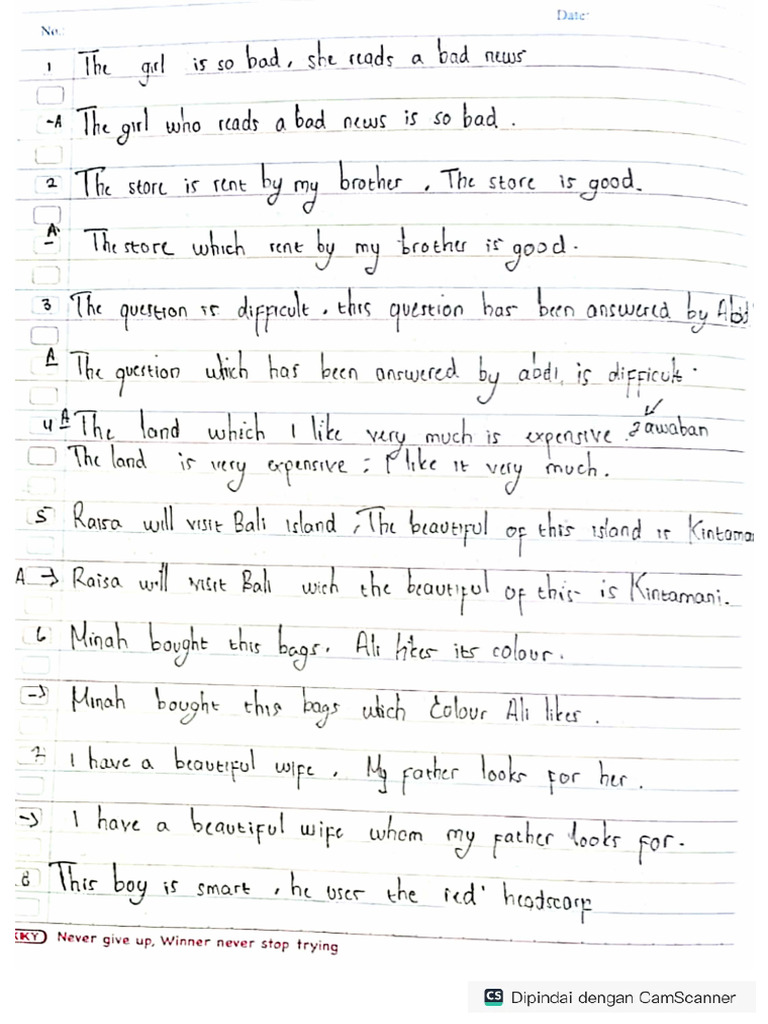 Date:
No.:
1 The girl is so bad, she reads a bad news
-A The girl who reads a bad news is so bad.
2 The store is rent by my brother. The store is good.
A - The store which rent by my brother is good.
3 The question is difficult. this question has been answered by Abdi
A The question which has been answered by abdi, is difficult.
4 A The land which I like very much is expensive. Jawaban
The land is very expensive; I like it very much.
5 Raisa will visit Bali island, The beautiful of this island is Kintama
A. → Raisa will visit Bali wich the beautiful of this is Kintamani.
6 Minah bought this bags. Ali likes its colour.
→ Minah bought this bags which Colour Ali likes.
7 I have a beautiful wife. My father looks for her.
→ I have a beautiful wife whom my father looks for.
8 This boy is smart, he user the red headscarf
KKY Never give up, Winner never stop trying
CS Dipindai dengan CamScanner